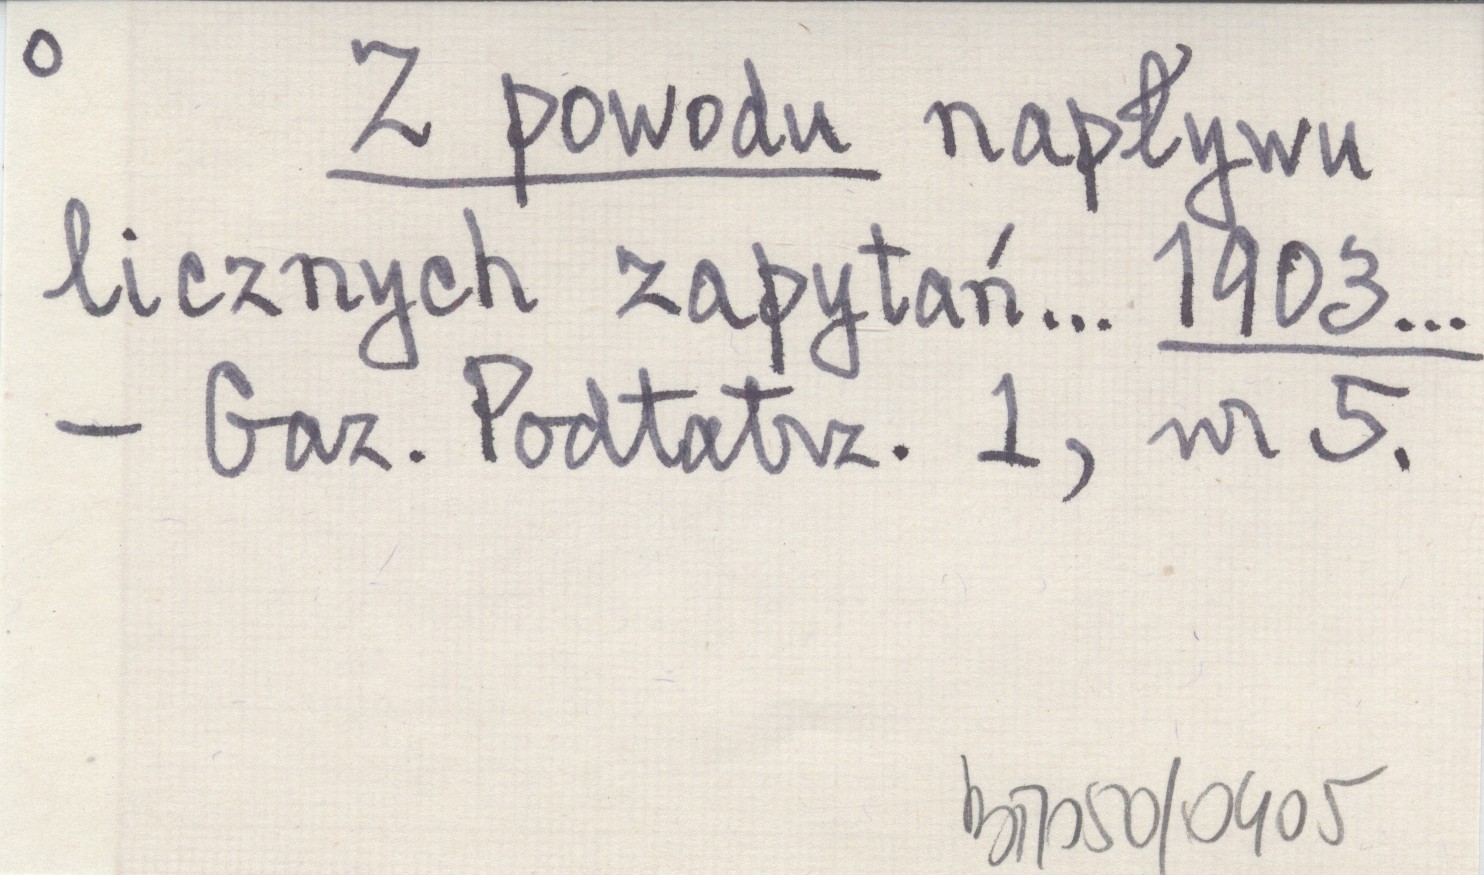 o
Z powodu napływu
licznych zapytań... 1903...
– Gaz. Podtatrz. 1, nr 5.
bi7p50/0405